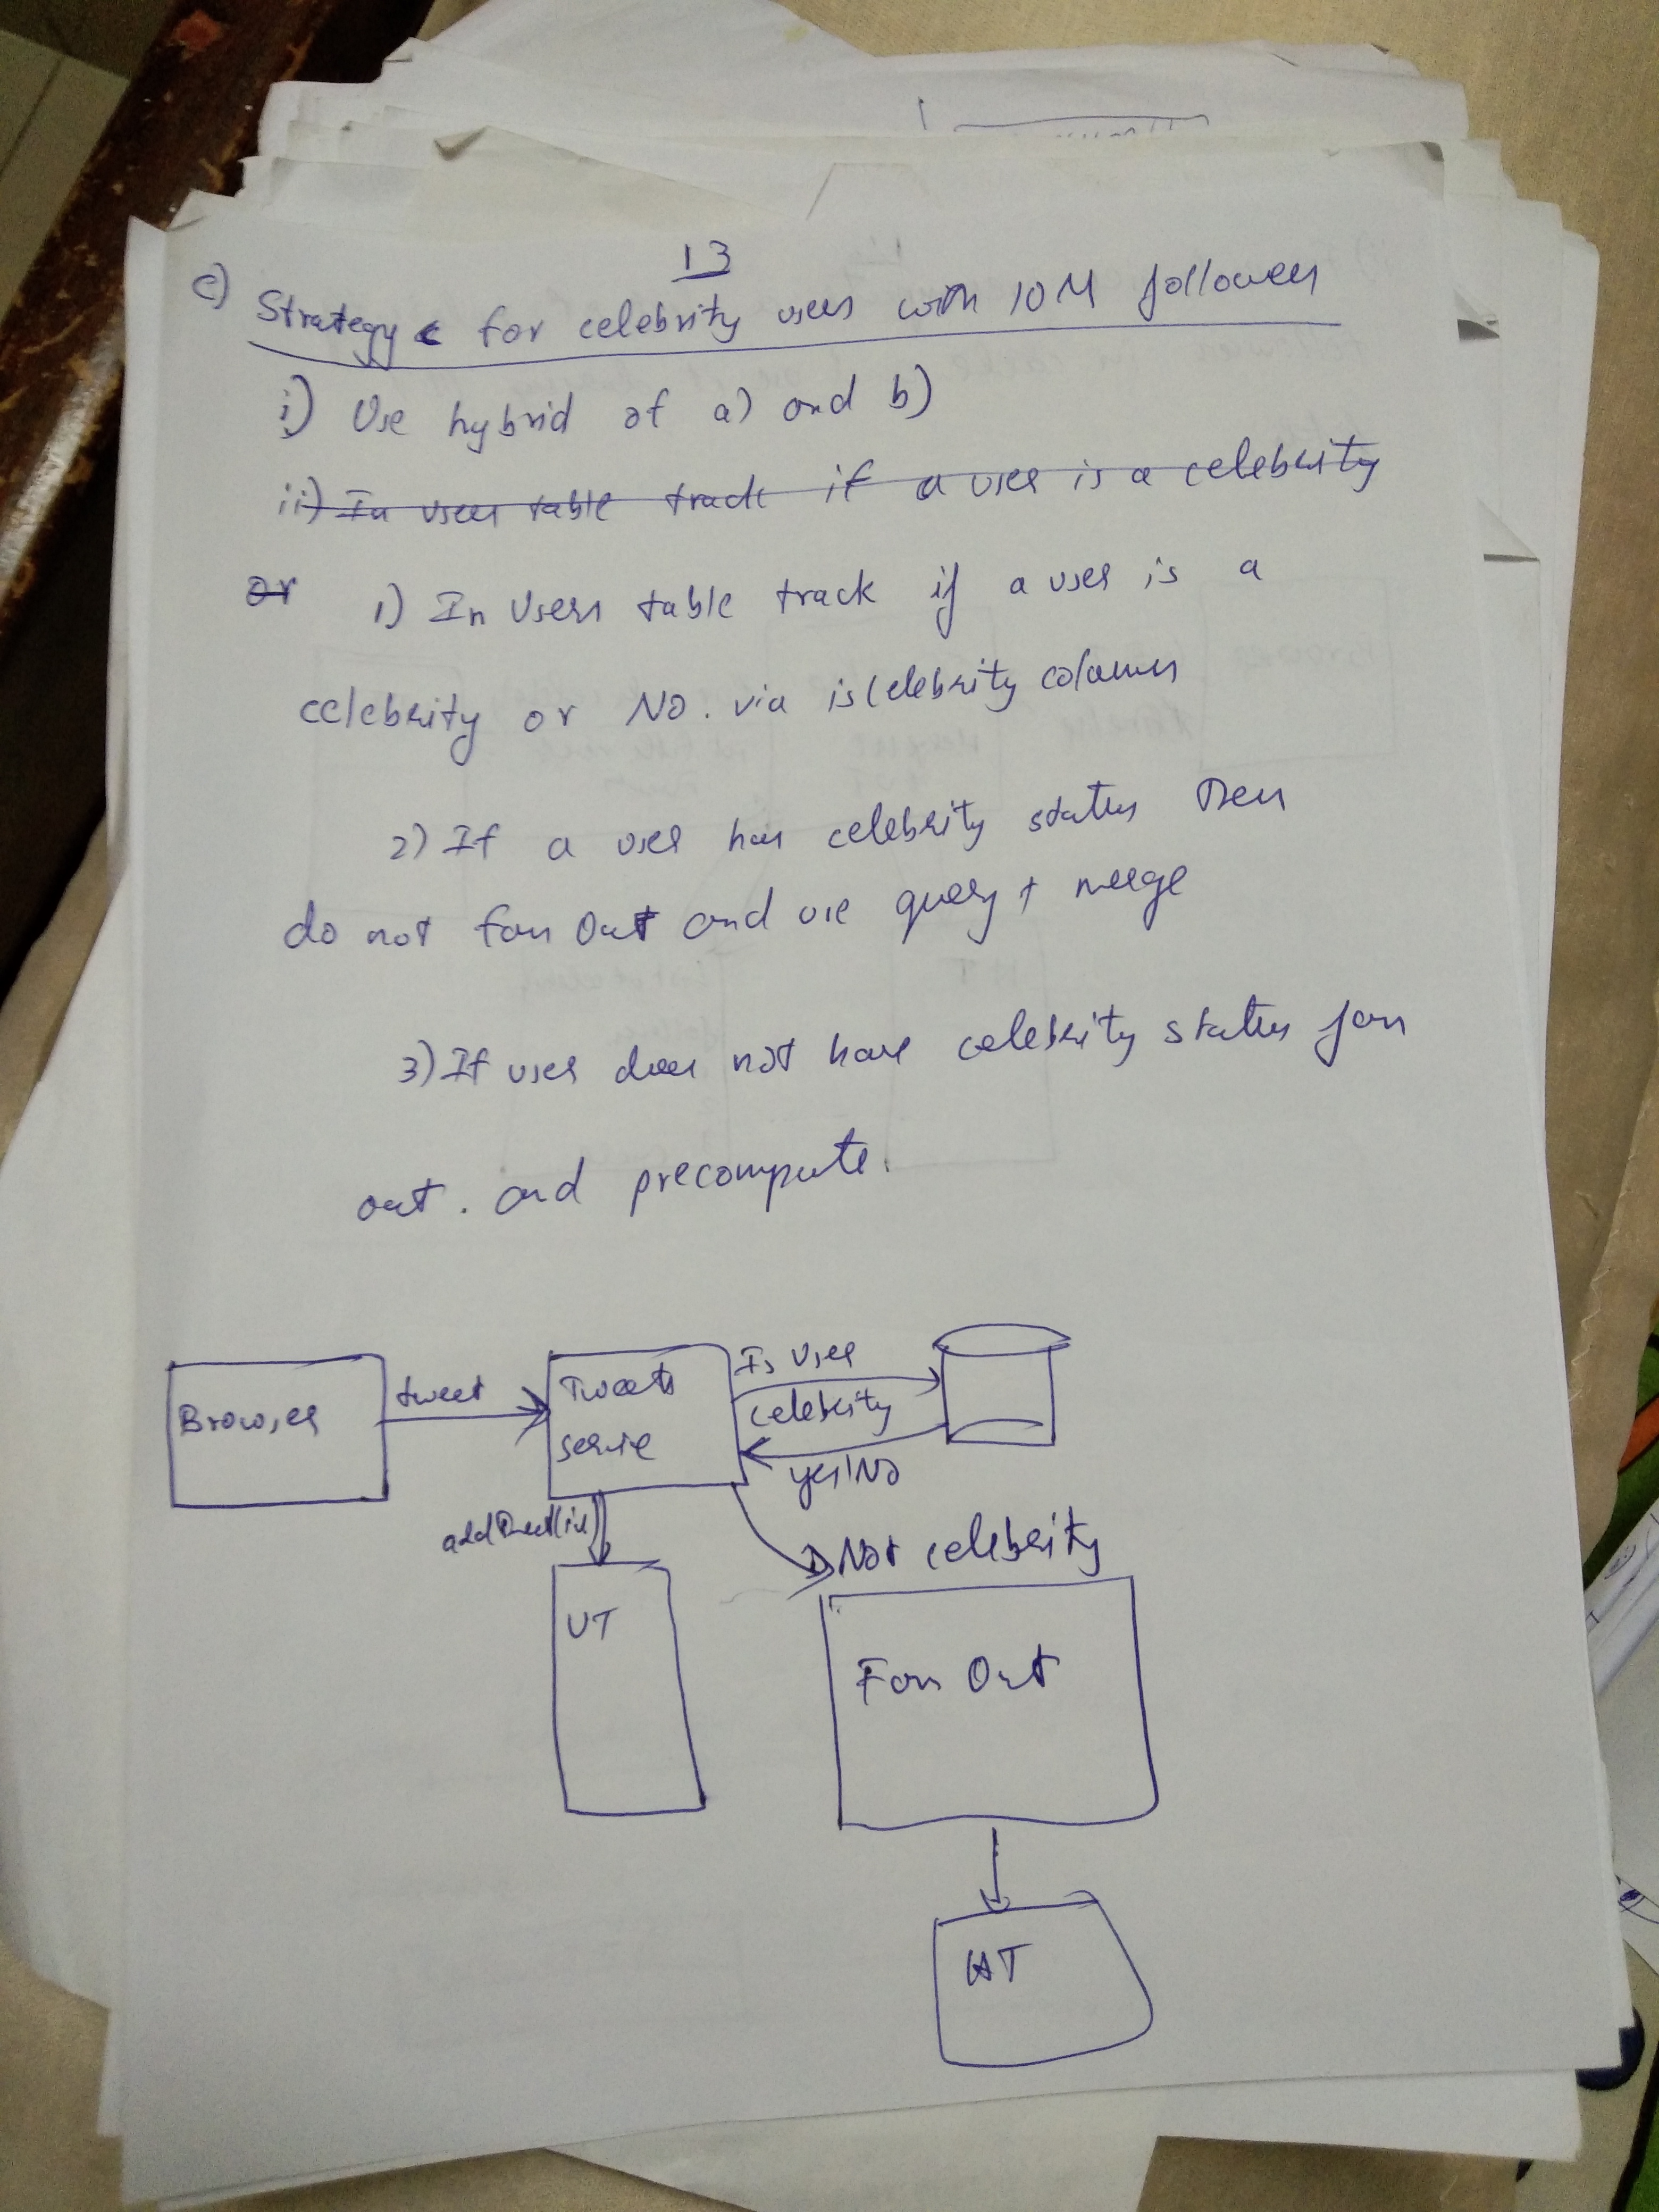 13
c) Strategy for celebrity users with 10M followers
i) Use hybrid of a) and b)
ii) In users table track if a user is a celebrity
or 1) In Users table track if a user is a
celebrity or No. via isCelebrity column
2) If a user has celebrity status then
do not fan out and use query + merge
3) If user does not have celebrity status fan
out. and precompute.
Browser
tweet
Tweets
servie
Is User
celebrity
yes/No
addTweet()
UT
Not celebrity
Fan Out
HT